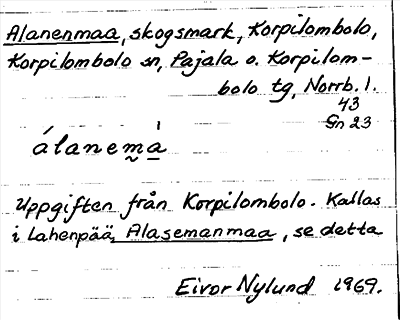 Alanenmaa, skogsmark, Korpilombolo,
Korpilombolo sn, Pajala o. Korpilom-
bolo tg, Norrb. l.
43
Gn 23
álanem̰a̲̍
Uppgiften från Korpilombolo. Kallas
i Lahenpää, Alasemanmaa, se detta
Eivor Nylund 1969.